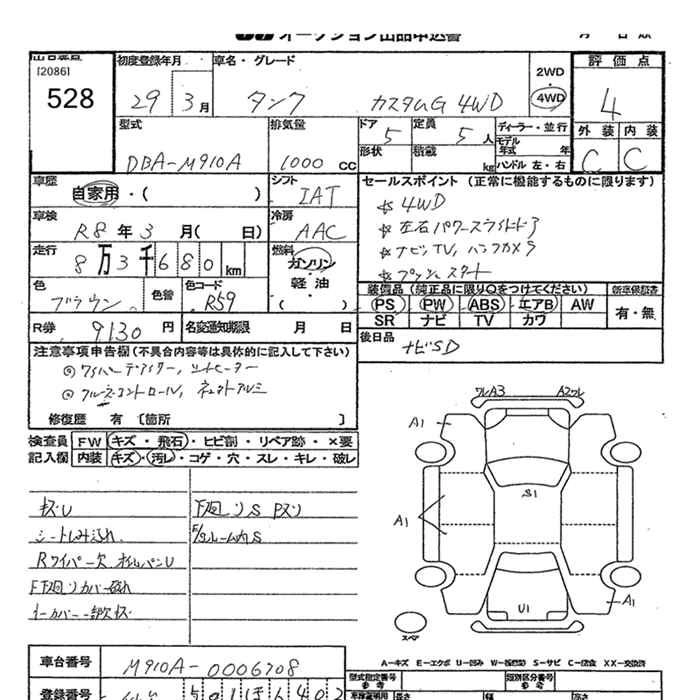 オークション出品申込書
[2086]
528
初度登録年月
29 3月
車名・グレード
タンク カスタムG 4WD
2WD
4WD
評価点
4
外装 内装
C C
型式
DBA-M910A
排気量
1000 CC
ドア 5
定員 5人
形状
積載 kg
ディーラー・並行
モデル年式 年
ハンドル 左・右
車歴
自家用・( )
シフト
IAT
車検
R8年3月( 日)
冷房
AAC
走行
8万3千680km
燃料
ガソリン
軽油
( )
色
ブラウン
色替
色コード
R59
R券 9130円
名変通知期限 月 日
セールスポイント (正常に機能するものに限ります)
☆4WD
☆左右パワースライドドア
☆ナビ,TV,バックカメラ
☆プッシュスタート
装備品 (純正品に限り○をつけてください)
新車保証書
PS PW ABS エアB AW
SR ナビ TV カワ
有・無
後日品
ナビSD
注意事項申告欄(不具合内容等は具体的に記入して下さい)
◎ワイパーデアイサー, シートヒーター
◎クルーズコントロール,
修復歴 有 〔箇所 〕
検査員記入欄
FW キズ・飛石・ヒビ割・リペア跡・×要
内装 キズ・汚レ・コゲ・穴・スレ・キレ・破レ
キズU
シートしみ汚れ
Rワイパー欠
F下廻りカバー破れ
下廻りS Pスリ
ルーム内S
ワレA3 A2ワレ
A1
S1
A1
U1
A1
スペア
A-キズ E-エクボ U-凹み W-板金跡 S-サビ C-腐食 XX-交換済
車台番号
M910A-0006708
登録番号
501 402
型式指定番号
参考
類別区分番号
参考
長さ 幅 高さ